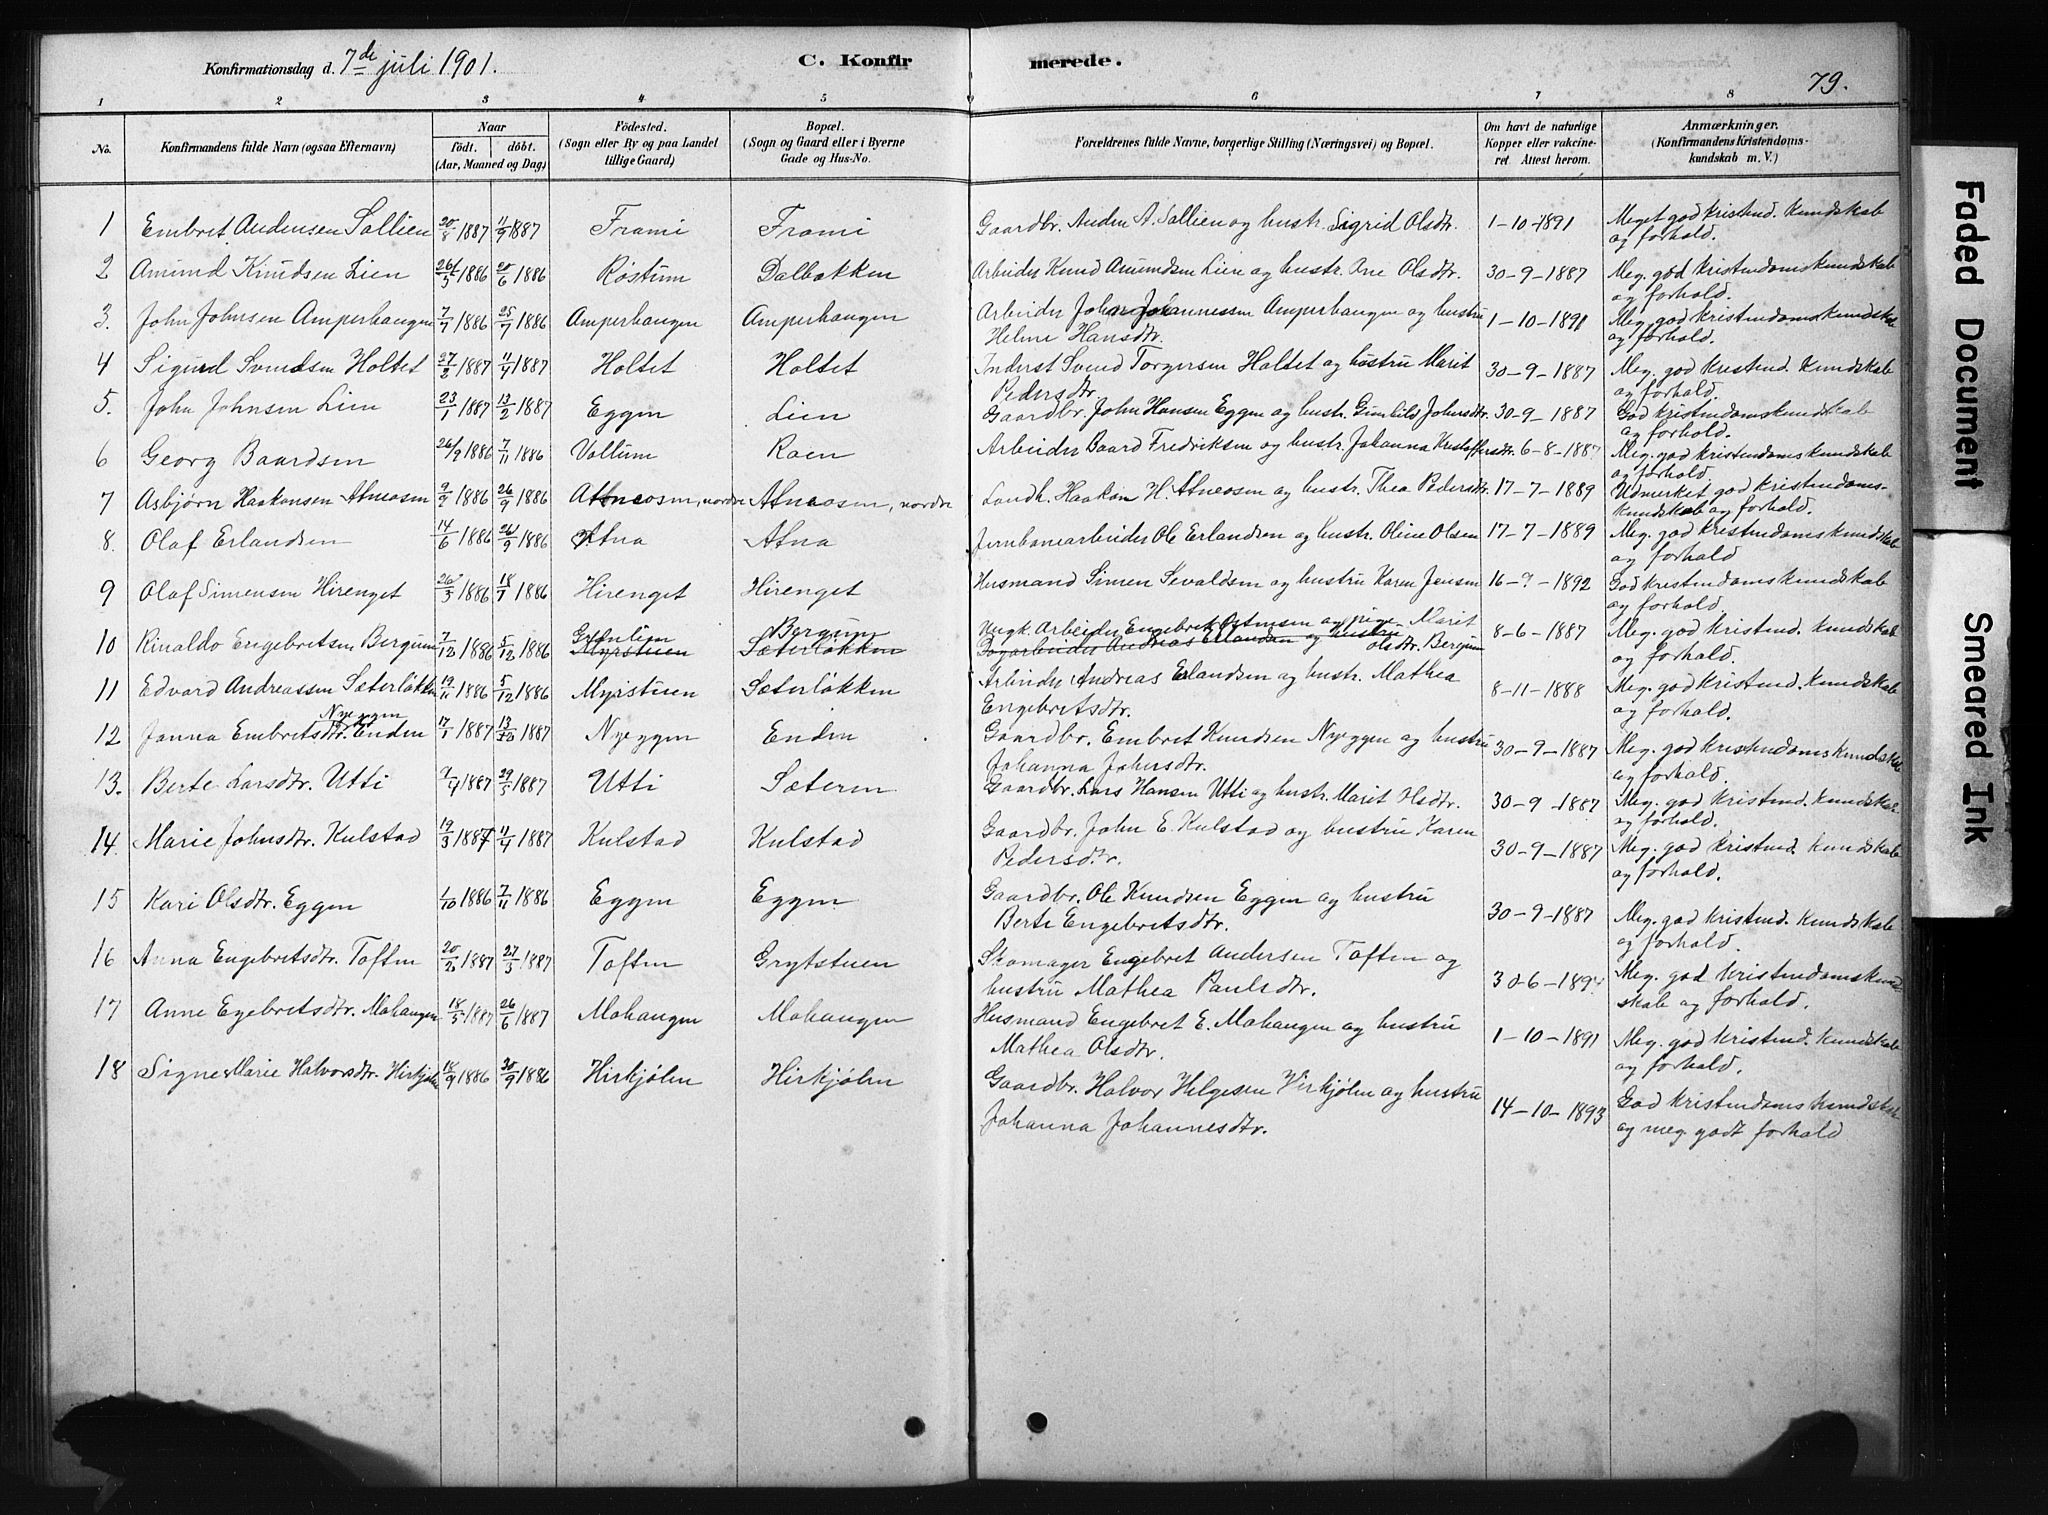 Konfirmationsdag d. 7de juli 1901.
C. Konfirmerede.
79.
1 2 3 4 5 6 7 8
No.
Konfirmandens fulde Navn (ogsaa Efternavn)
Naar
Født. døbt.
(Aar, Maaned og Dag)
Fødested.
(Sogn eller By og paa Landet
tillige Gaard)
Bopæl.
(Sogn og Gaard eller i Byerne
Gade og Hus-No.
Forældrenes fulde Navne, borgerlige Stilling (Næringsvei) og Bopæl.
Om havt de naturlige
Kopper eller vakcine-
ret Attest herom.
Anmærkninger.
(Konfirmandens Kristendoms-
kundskab m. V.)
1 Embret Andersen Sollien 20/8 1887 11/9 1887 Frami Frami Gaardbr. Anden A. Sollien og hustr. Sigrid Olsdtr. 1-10-1891 Meget god kristend. kundskab
og forhold.
2 Amund Knudsen Lien 26/5 1886 20/6 1886 Røstum Dalbakken Arbeider Knud Amundsen Lien og hustr. Ane Olsdtr. 30-9-1887 Meg. god kristendomskundskab
og forhold.
3. John Johnsen Amperhaugen 7/7 1886 25/7 1886 Amperhaugen Amperhaugen Arbeider Johan Johannessen Amperhaugen og hustru 1-10-1891 Meg. god kristendomskundskab
Helene Hansdtr. og forhold.
4 Sigurd Svendsen Holtet 27/2 1887 11/4 1887 Holtet Holtet Inderst Svend Torgersen Holtet og hustru Marit 30-9-1887 Meg. god kristend. kundskab
Pedersdtr og forhold.
5. John Johnsen Lien 23/1 1887 13/2 1887 Eggen Lien Gaardbr. John Hansen Eggen og hustr. Gunhild Johnsdtr. 30-9-1887 God kristendomskundskab
og forhold.
6 Georg Baardsen 26/9 1886 7/11 1886 Vollum Roen Arbeider Baard Fredriksen og hustr. Johanna Kristoffersdtr. 6-8-1887 Meg. god kristendomskundskab
og forhold.
7 Asbjørn Haakonsen Atneosen 9/9 1886 26/9 1886 Atneosen, nordre Atneosen, nordre Landh. Haakon H. Atneosen og hustr. Thea Pedersdtr. 17-7-1889 Udmerket god kristendoms-
kundskab og forhold.
8. Olaf Erlandsen 14/6 1886 26/9 1886 Atna Atna Jernbanearbeider Ole Erlandsen og hustr. Oline Olsen 17-7-1889 Meg. god kristendomskundskab
og forhold
9 Olaf Simensen Hirenget 26/5 1886 18/7 1886 Hirenget Hirenget Husmand Simen Sevaldsen og hustru Karen Jensen 16-9-1892 God kristendomskundskab
og forhold
10 Rinaldo Engebretsen Bergum 7/12 1886 5/12 1886 Grønlien Myrstuen Bergum Sæterløkken Ungk. Arbeider Engebret Ostensen og pige Marit
Dagarbeider Andreas Erlandsen og hustru Olsdtr. Bergum 8-6-1887 Meg. god kristend. kundskab
og forhold.
11 Edvard Andreassen Sæterløkken 19/11 1886 5/12 1886 Myrstuen Sæterløkken Arbeider Andreas Erlandsen og hustr. Mathea 8-11-1888 Meg. god kristend. kundskab
Engebretsdtr. og forhold.
12 Janna Embretsdtr. Nyeggen Enden 17/1 1887 13/ 1887 Nyeggen Enden Gaardbr. Embret Knudsen Nyeggen og hustru 30-9-1887 Meg. god kristendomskundskab
Johanna Johnsdtr. og forhold.
13. Berte Larsdtr. Utti 7/4 1887 29/5 1887 Utti Sæteren Gaardbr. Lars Hansen Utti og hustr. Marit Olsdtr. 30-9-1887 Meg. god kristend. kundskab
og forhold.
14. Marie Johnsdtr. Kulstad 19/3 1887 11/4 1887 Kulstad Kulstad Gaardbr. John E. Kulstad og hustru Karen 30-9-1887 Meg. god kristend. kundskab
Pedersdtr. og forhold.
15 Kari Olsdtr. Eggen 1/10 1886 7/11 1886 Eggen Eggen Gaardbr. Ole Knudsen Eggen og hustru 30-9-1887 Meg. god kristend. kundskab
Berte Engebretsdtr. og forhold.
16 Anna Engebretsdtr. Toften 20/2 1887 27/3 1887 Toften Grytstuen Skomager Engebret Andersen Toften og 30-6-189 Meg. god kristendomskund-
hustru Mathea Paulsdtr. skab og forhold.
17 Anne Egebretsdtr. Mohaugen 18/5 1887 26/6 1887 Mohaugen Mohaugen Husmand Engebret E. Mohaugen og hustru 1-10-1891 Meg. god kristend. kundskab
Mathea Olsdtr. og forhold.
18 Signe Marie Halvorsdtr. Hirkjølen 18/9 1886 30/9 1886 Hirkjølen Hirkjølen Gaardbr. Halvor Helgesen Virkjølen og hustru 14-10-1893 God kristendomskundskab
Johanna Johannesdtr. og meg. godt forhold
Faded Document
Smeared Ink